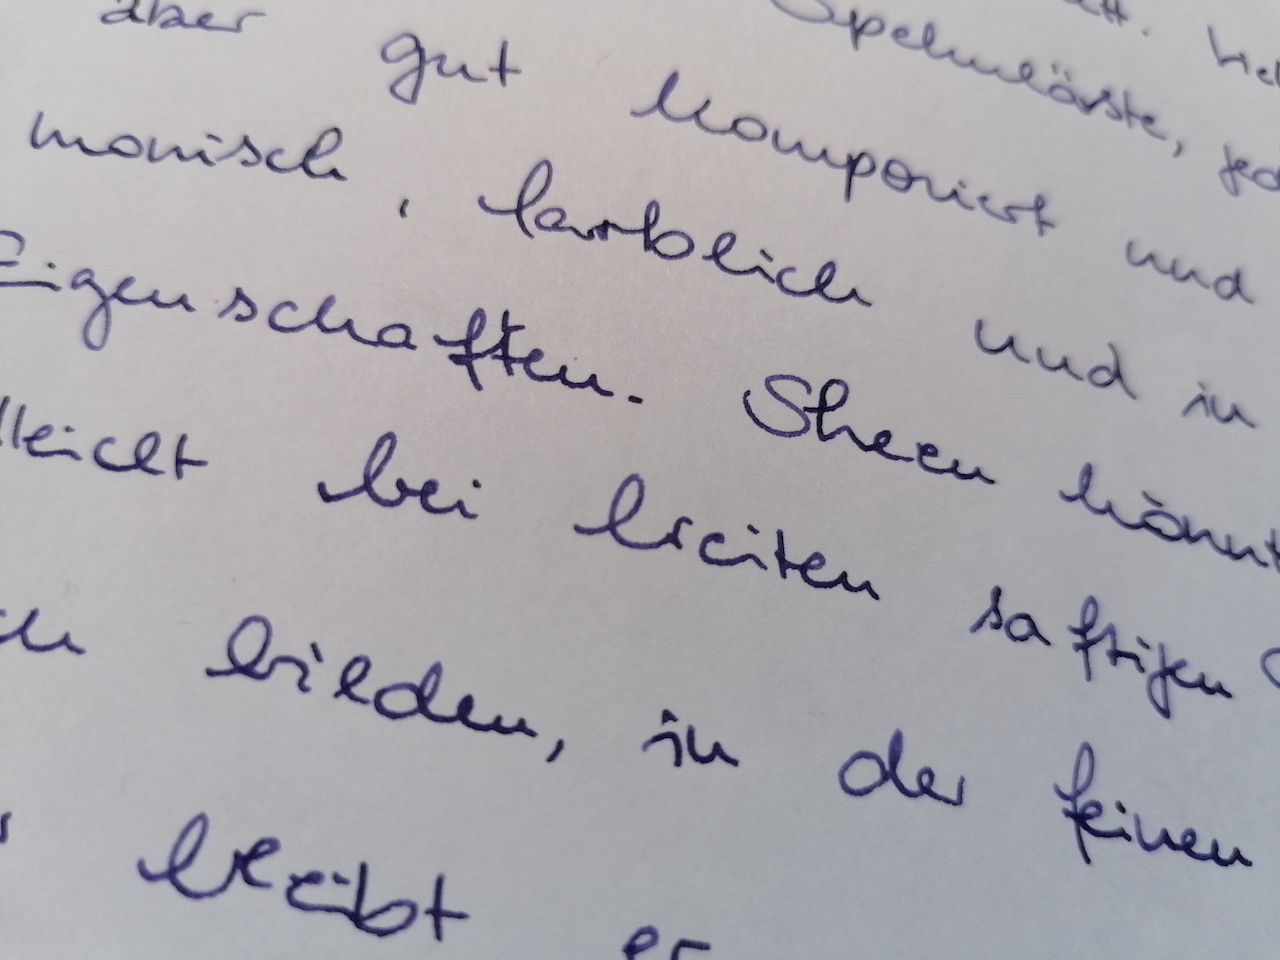 aber gut komponiert und
monisch, farblich und in
Eigenschaften. Sheen könnt
lleicht bei breiten saftigen
ch bilden, in der feinen
bleibt er